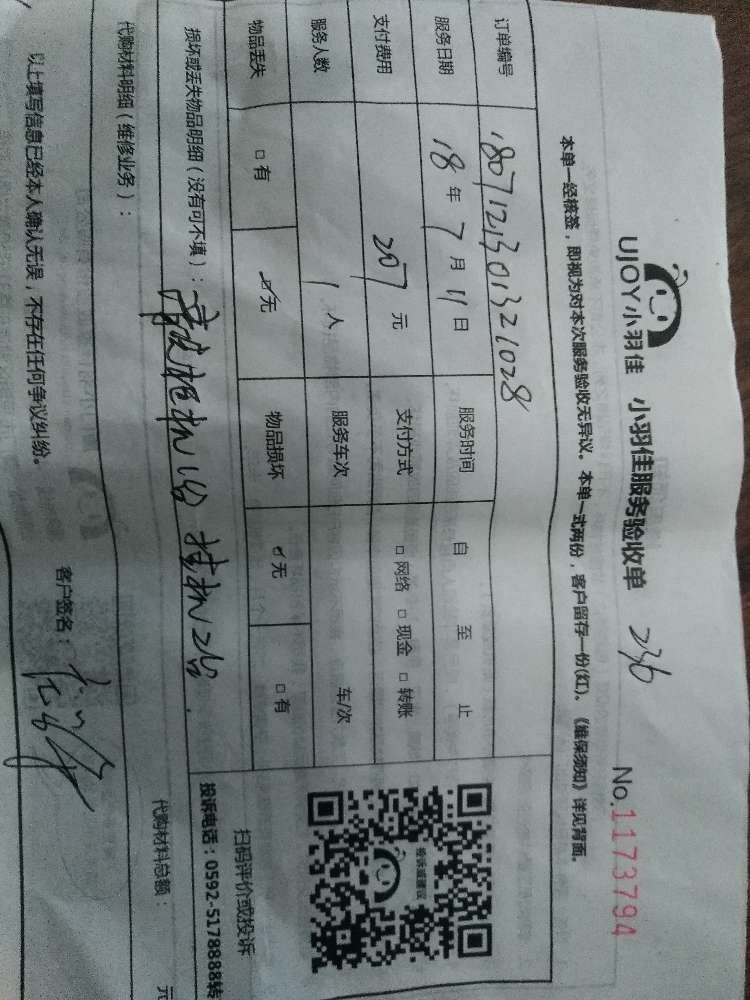 UJOY小羽佳 小羽佳服务验收单 236 No.1173794
本单一经核签，即视为对本次服务验收无异议。本单一式两份，客户留存一份(红)。《维保须知》详见背面。
订单编号 1807121301321028
服务日期 18年7月11日 服务时间 自 至 止
支付费用 207元 支付方式 □网络 □现金 □转账
服务人数 1人 服务车次 车/次
物品丢失 □有 ☑无 物品损坏 ☑无 □有
投诉或建议
扫码评价或投诉
投诉电话：0592-5178888转
损坏或丢失物品明细（没有可不填）：柜机1台 挂机2台.
代购材料明细（维修业务）： 代购材料总额： 元
以上填写信息已经本人确认无误，不存在任何争议纠纷。 客户签名：